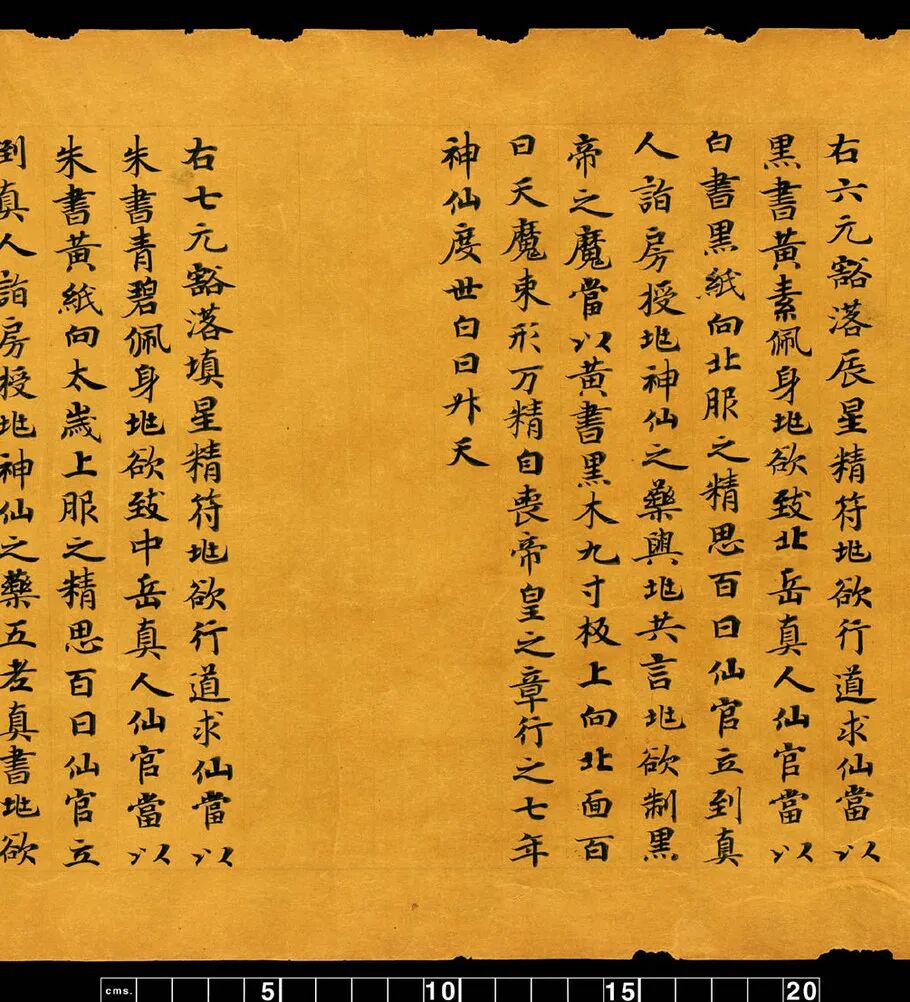 右六元豁落辰星精符兆欲行道求仙當以
黑書黃素佩身兆欲致北岳真人仙官當以
白書黑紙向北服之精思百日仙官立到真
人詣房授兆神仙之藥與兆共言兆欲制黑
帝之魔當以黃書黑木九寸板上向北面百
日天魔束形万精自喪帝皇之章行之七年
神仙度世白日升天
右七元豁落填星精符兆欲行道求仙當以
朱書青碧佩身兆欲致中岳真人仙官當以
朱書黃紙向太歲上服之精思百日仙官立
到真人詣房授兆神仙之藥五老真書兆欲
cms. 5 10 15 20